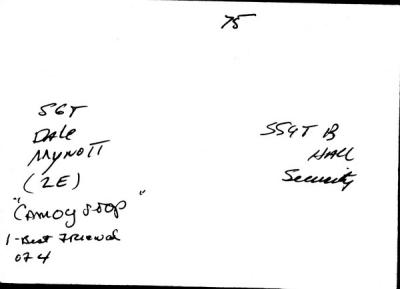 75
SGT
Dale
Mynott
(2E)
"Camoy Stop"
1-Best Friend
of 4
SSGT B
Hall
Security